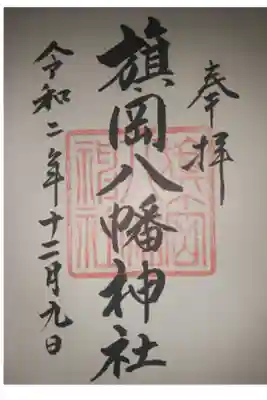 奉拝
旗岡八幡神社
令和二年十二月九日